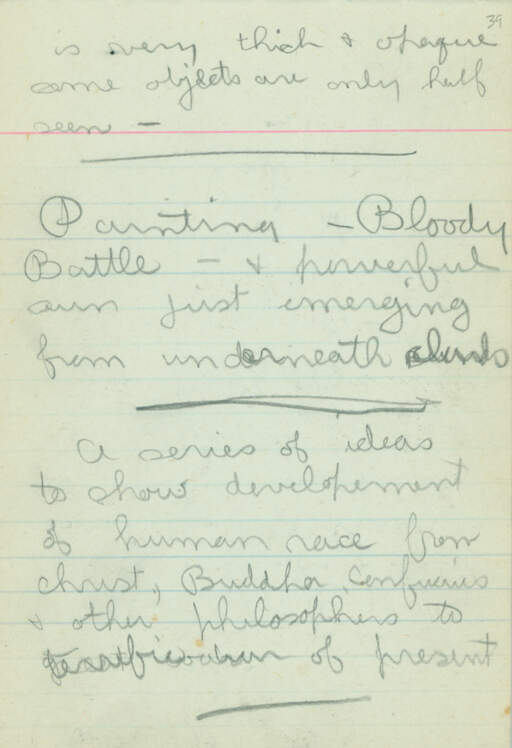 39
is very thick & opaque
some objects are only half
seen —
Painting — Bloody
Battle — & powerful
sun just emerging
from underneath clouds
A series of ideas
to show developement
of human race from
christ, Buddha, Confucius
& other philosophers to
of present